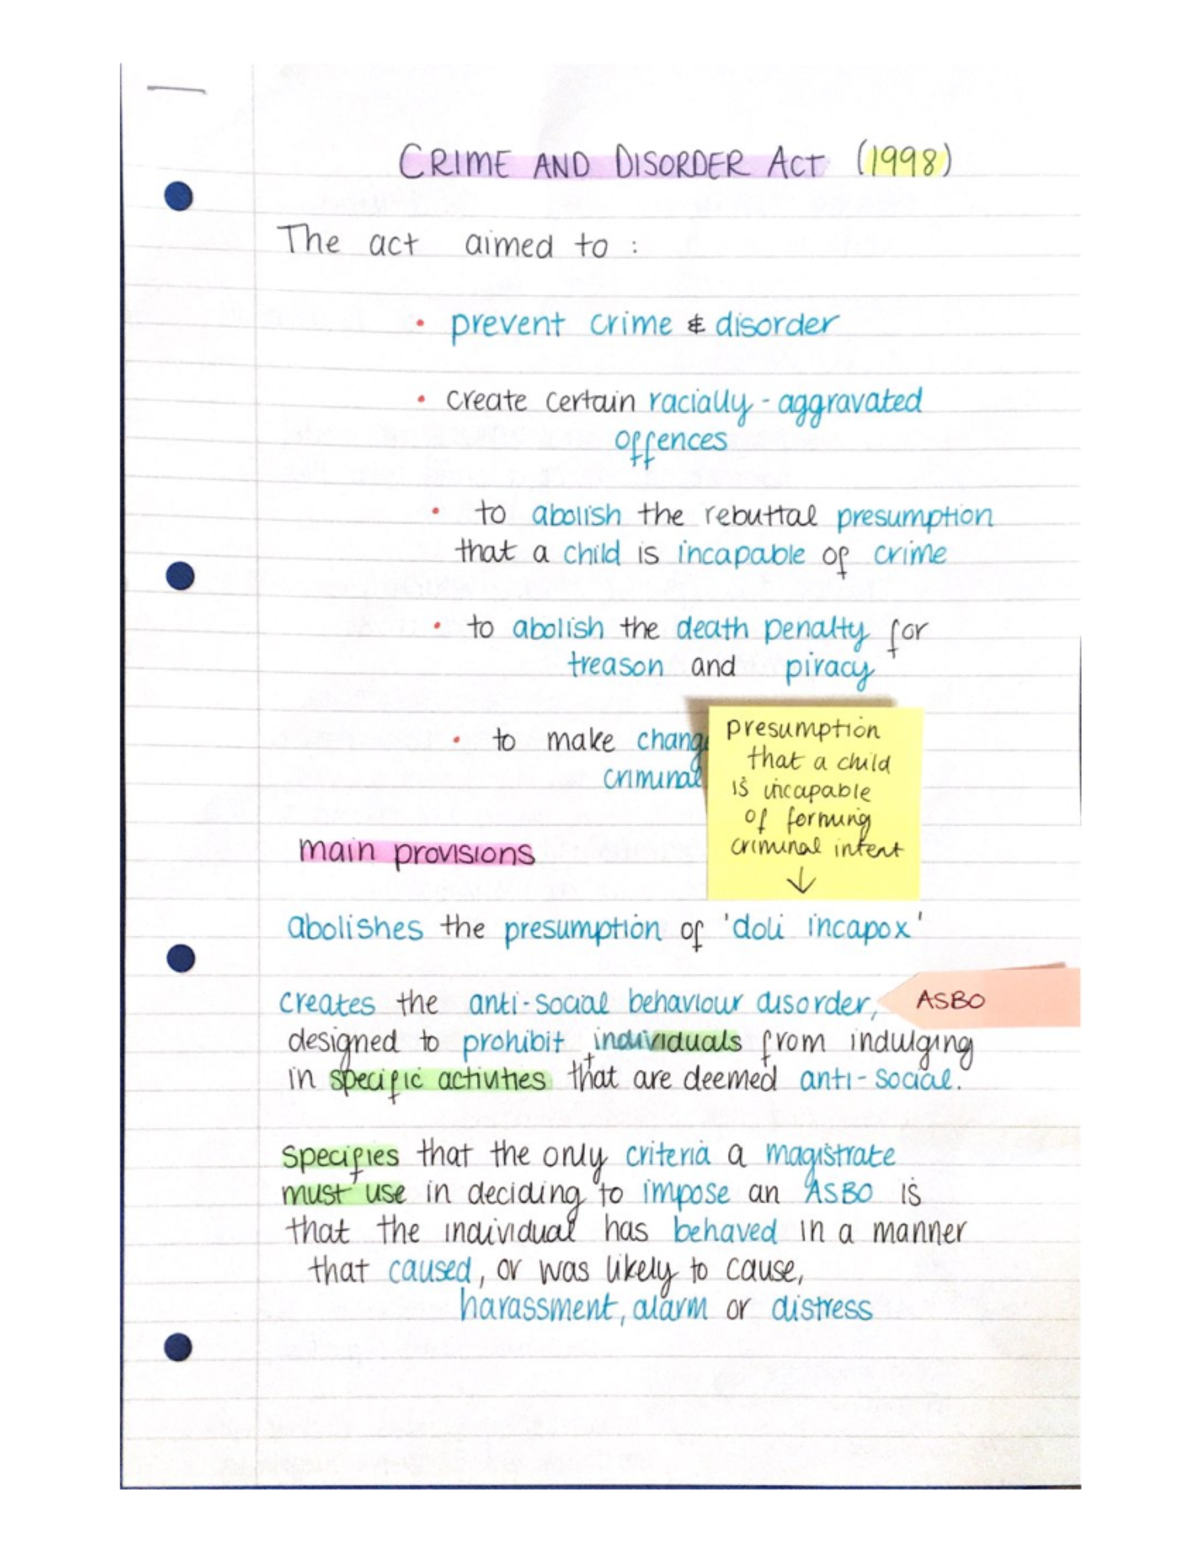 CRIME AND DISORDER ACT (1998)
The act aimed to :
• prevent crime & disorder
• create certain racially - aggravated
offences
• to abolish the rebuttal presumption
that a child is incapable of crime
• to abolish the death penalty for
treason and piracy
• to make chang
criminal
presumption
that a child
is incapable
of forming
criminal intent
↓
main provisions
abolishes the presumption of 'doli incapox'
creates the anti-social behaviour disorder,
ASBO
designed to prohibit individuals from indulging
in specific activities that are deemed anti-social.
Specifies that the only criteria a magistrate
must use in deciding to impose an ASBO is
that the individual has behaved in a manner
that caused, or was likely to cause,
harassment, alarm or distress